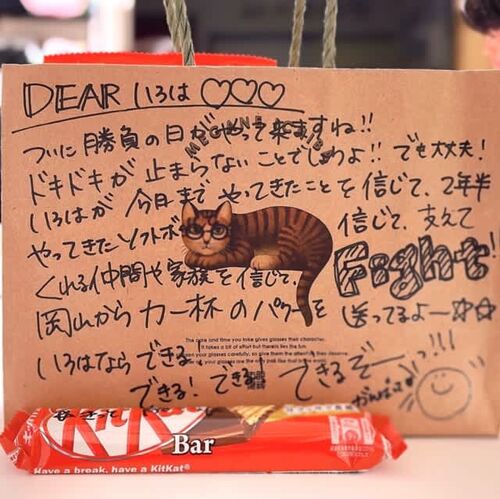 DEAR いろは ♡♡♡
ついに 勝負の日がやって来ますね!!
ドキドキが 止まらないことでしょうよ!! でも大丈夫!
いろはが 今日まで やってきたことを信じて、2年半
やってきたソフトボ 信じて、支えて
くれる仲間や家族を信じて、 Fight!
岡山から 力一杯の パワーを 送ってるよー☆☆
The care and time you take gives glasses their character.
It takes a bit of effort but therein lies the fun.
いろはなら できる!
できる! できる! できるぞー!!!
がんばって
KitKat
Bar
Have a break, have a KitKat®